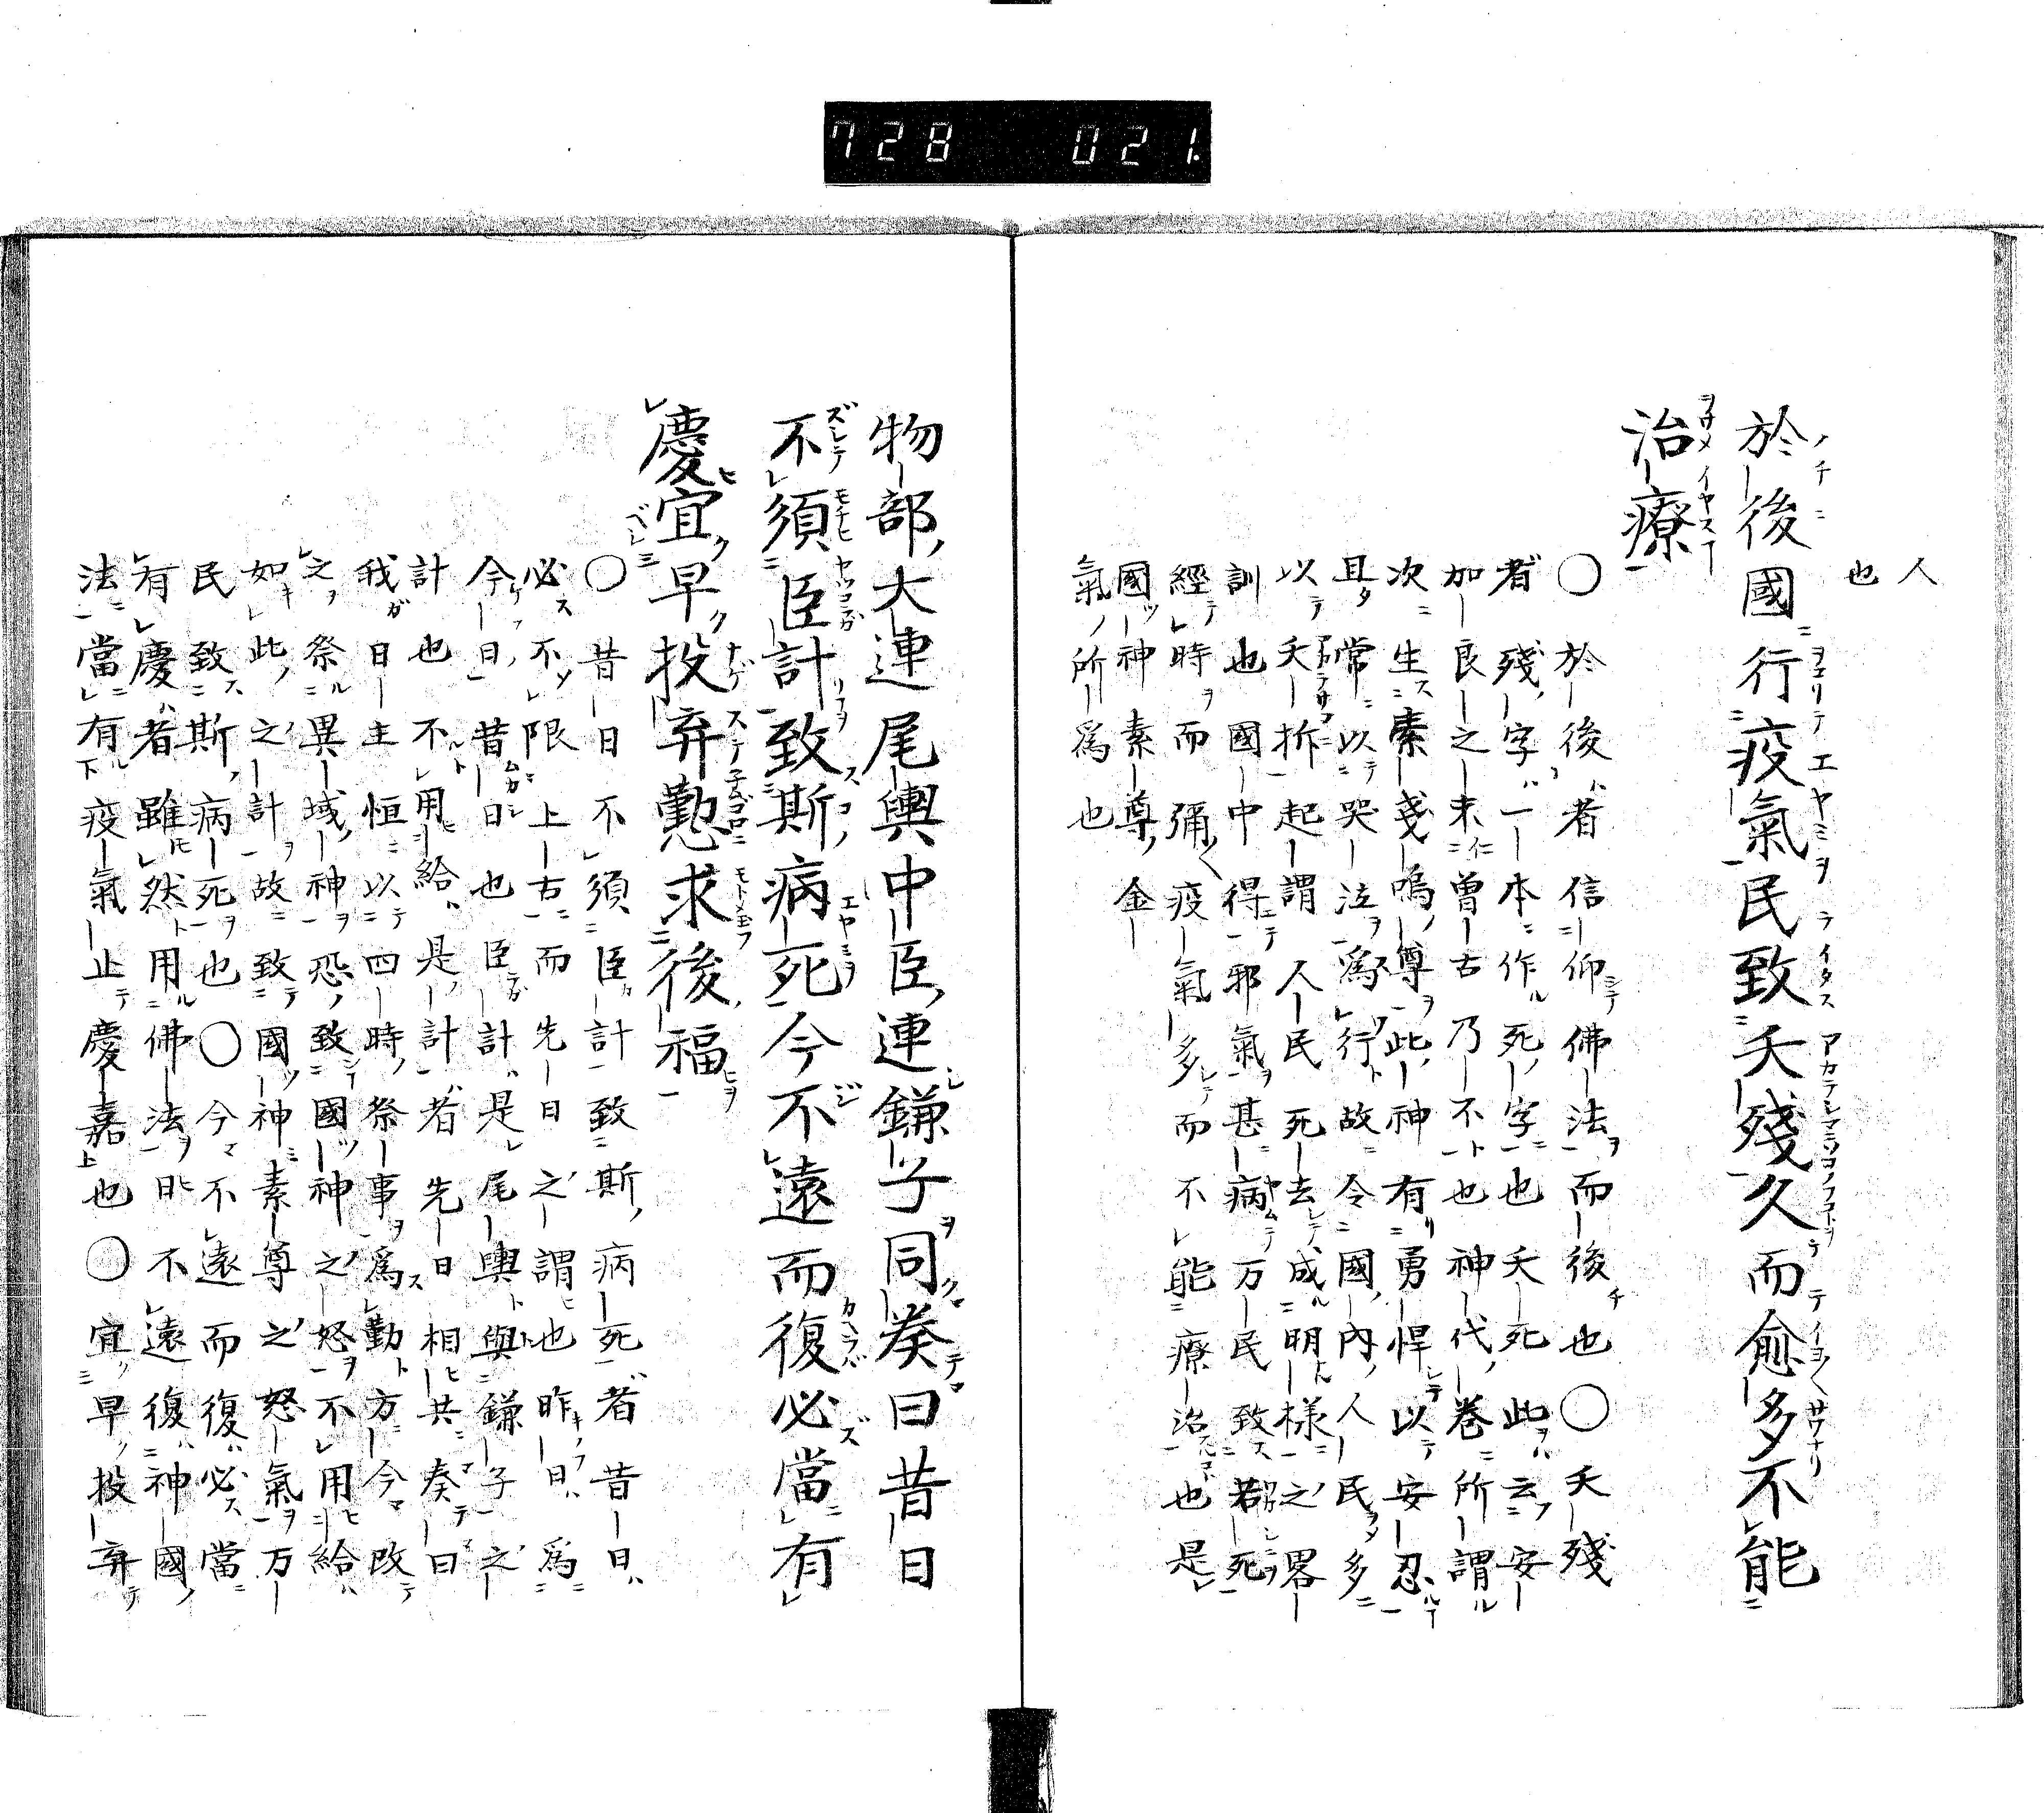 728 021
人
也
於後國行疫氣民致夭殘久而愈多不能
治療
〇於後者信仰佛法而後也〇夭殘
者殘字一本作死字也夭死此云安
加良之末曽古乃不也神代卷所謂
次生素戔嗚尊此神有勇悍以安忍
且常以哭泣爲行故令國內人民多
以夭折起謂人民死去成明樣之畧
訓也國中得邪氣甚病万民致若死
經時而彌〱疫氣多而不能療治也是
國神素尊金
氣所爲也
物部大連尾輿中臣連鎌子同奏曰昔日
不須臣計致斯病死今不遠而復必當有
慶宜早投弃懃求後福
〇昔日不須臣計致斯病死者昔日
必不限上古而先日之謂也昨日爲
今日昔日也臣計是尾輿與鎌子之
計也不用給是計者先日相共奏曰
我日主恒以四時祭事爲勤方今改
之祭異域神恐致國神之怒不用給
如此之計故致國神素尊之怒氣万
民致斯病死也〇今不遠而復必當
有慶者雖然用佛法曰不遠復神國
法當有疫氣止慶嘉也〇宜早投弃